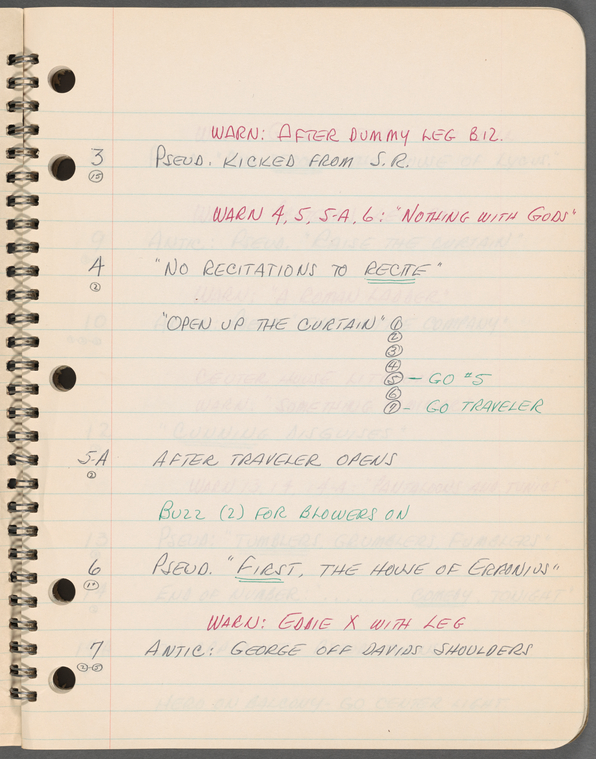 WARN: AFTER DUMMY LEG BIZ.
3 PSEUD. KICKED FROM S.R.
15
WARN 4, 5, 5-A, 6: "NOTHING WITH GODS"
4 "NO RECITATIONS TO RECITE"
2
"OPEN UP THE CURTAIN" 1
2
3
4
5 - GO #5
6
7 - GO TRAVELER
5-A AFTER TRAVELER OPENS
2
BUZZ (2) FOR BLOWERS ON
6 PSEUD. "FIRST, THE HOUSE OF ERRONIUS"
WARN: EDDIE X WITH LEG
7 ANTIC: GEORGE OFF DAVIDS SHOULDERS